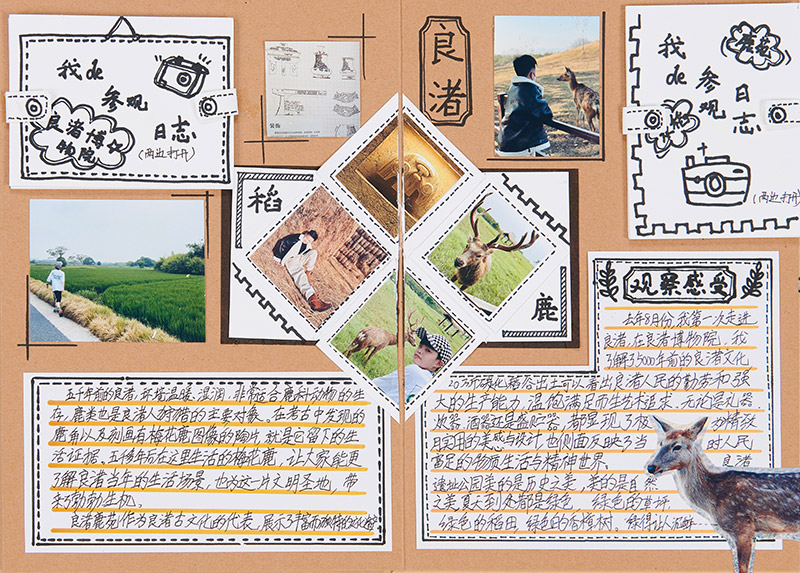 我de
参观
日志
良渚博
物院
(两边打开)
装饰
良
渚
我
de
参
观
日
志
鹿苑
(两边打开)
稻
鹿
观察感受
去年8月份,我第一次走进
良渚,在良渚博物院,我
了解到5000年前的良渚文化
20万斤碳化稻谷出土可以看出良渚人民的勤劳和强
大的生产能力,温饱满足而生艺术追求,无论是礼器
炊器、酒器还是盛贮器,都显现了极
致
且实用的美感与设计,也侧面反映了当
时人民
富足的物质生活与精神世界。
良渚
遗址公园美的是历史之美,美的是自然
之美,夏天到处都是绿色,绿色的草坪,
绿色的稻田,绿色的香樟树。绿得让人沉醉
五千年前的良渚,环境温暖、湿润,非常适合鹿科动物的生
存,鹿类也是良渚人狩猎的主要对象。在考古中发现的
鹿角以及刻画有梅花鹿图像的陶片,就是它留下的生
活证据。五千多年后在这里生活的梅花鹿,让大家能更
了解良渚当年的生活场景,也为这一片文明圣地,带
来了勃勃生机。
良渚鹿苑作为良渚古文化的代表,展示了丰富而独特的文化